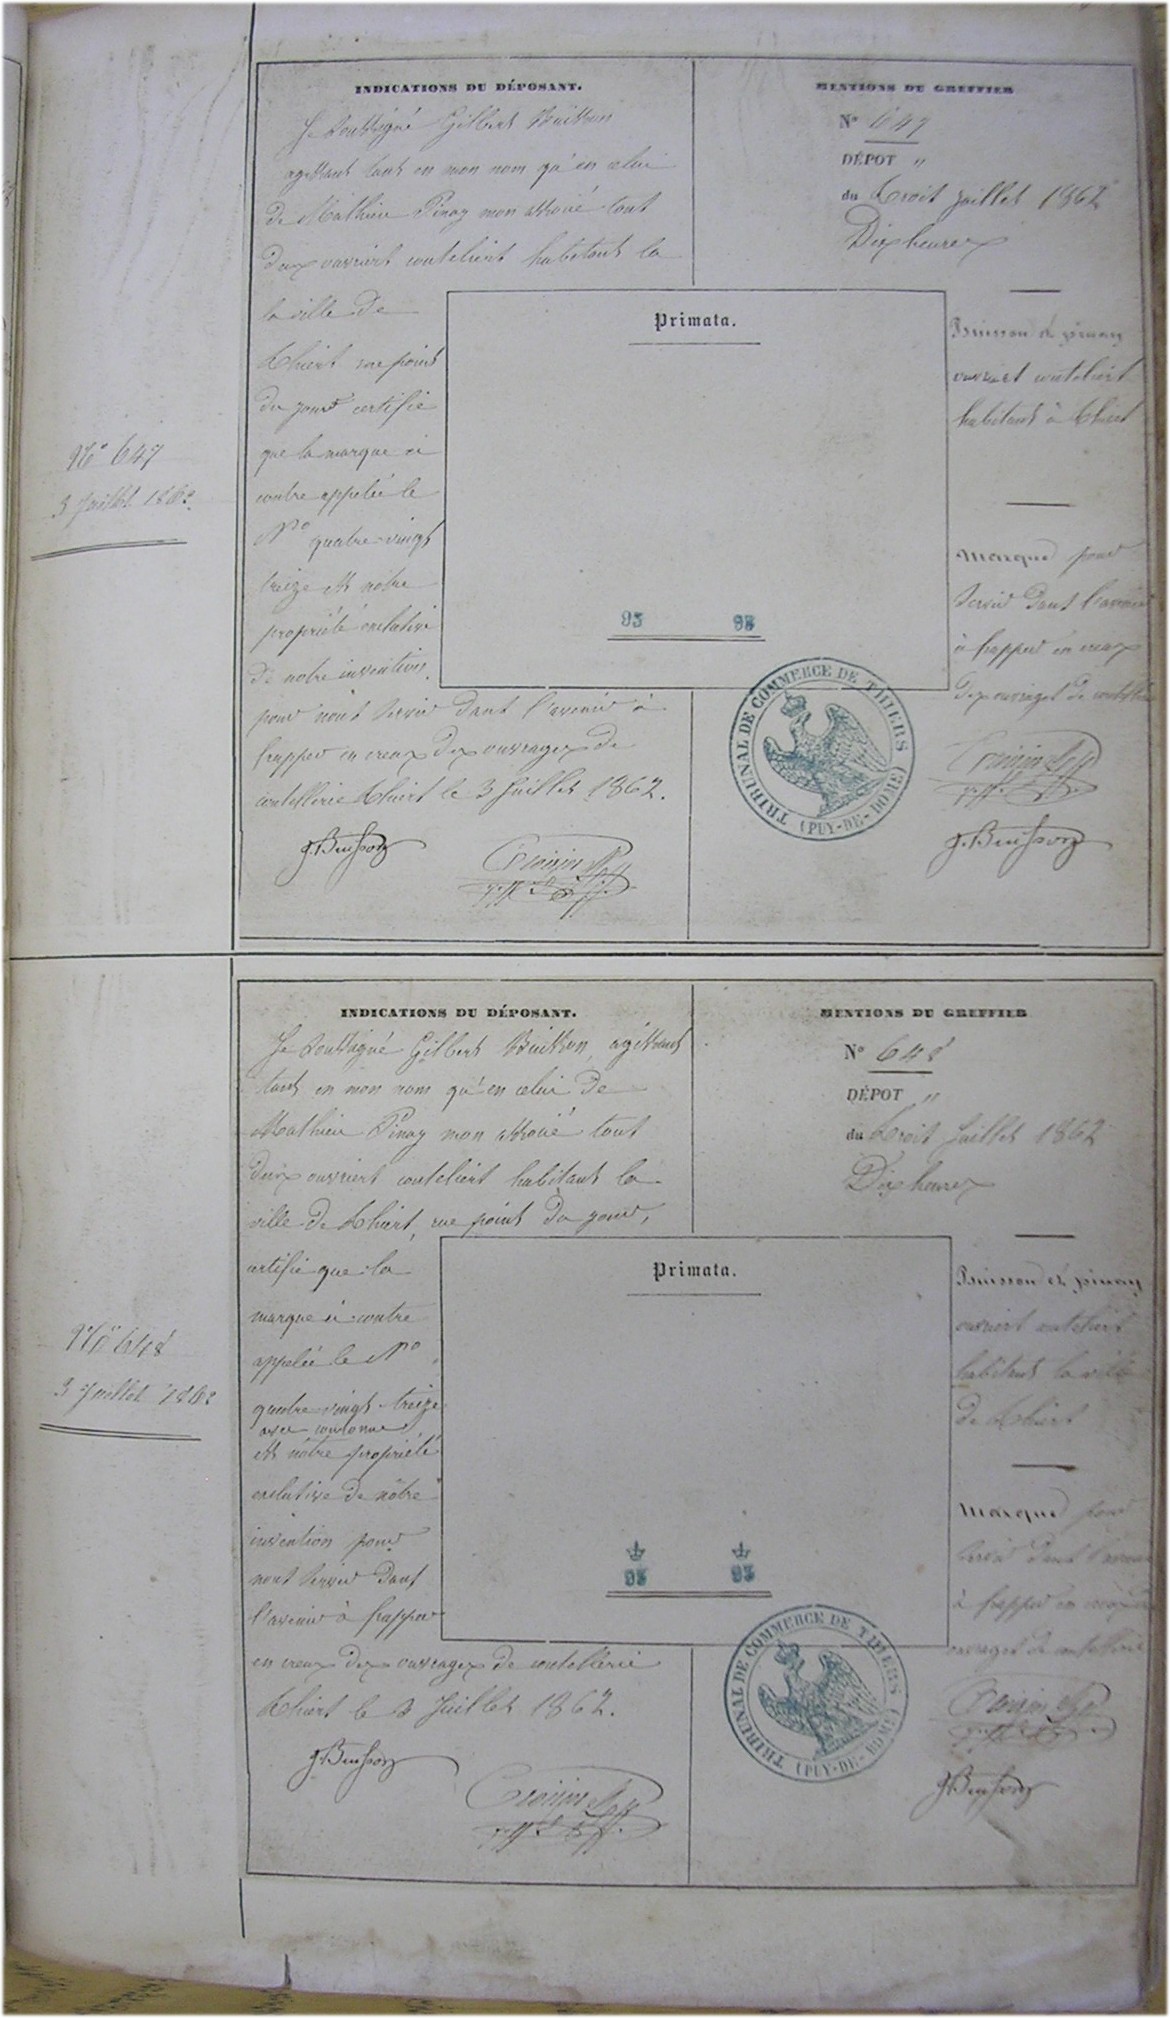 INDICATIONS DU DÉPOSANT.
Je soussigné Gilbert Buisson
agissant tant en mon nom qu'en celui
de Mathieu Pinay mon associé tout
deux ouvriers couteliers habitant la
la ville de
Thiers rue point
du jour certifie
que la marque ci
contre appelée le
N° quatre-vingt
treize est nôtre
propriété exclusive
de notre invention
pour nous servir dans l'avenir à
frapper en creux des ouvrages de
coutellerie Thiers le 3 Juillet 1862.
G. Buisson
MENTIONS DU GREFFIER
N° 647
DÉPOT "
du trois juillet 1862
Dix heures
Primata.
93 93
Buisson et pinay
ouvriers couteliers
habitant à Thiers
Marque pour
servir dans l'avenir
à frapper en creux
des ouvrages de coutellerie
TRIBUNAL DE COMMERCE DE THIERS
(PUY-DE-DOME)
G. Buisson
N° 647
3 Juillet 1862.
INDICATIONS DU DÉPOSANT.
Je soussigné Gilbert Buisson, agissant
tant en mon nom qu'en celui de
Mathieu Pinay mon associé tout
deux ouvriers couteliers habitant la
ville de Thiers, rue point du jour,
certifie que la
marque ci contre
appelée le N°
quatre-vingt-treize
avec couronne
est nôtre propriété
exclusive de nôtre
invention pour
nous servir dans
l'avenir à frapper
en creux des ouvrages de coutellerie
Thiers le 3 Juillet 1862.
G. Buisson
MENTIONS DU GREFFIER
N° 648
DÉPOT "
du trois Juillet 1862
Dix heures
Primata.
93 93
Buisson et pinay
ouvriers couteliers
habitant la ville
de Thiers
Marque pour
servir dans l'avenir
à frapper en creux
ouvrages de coutellerie
TRIBUNAL DE COMMERCE DE THIERS
(PUY-DE-DOME)
G. Buisson
N° 648
3 Juillet 1862